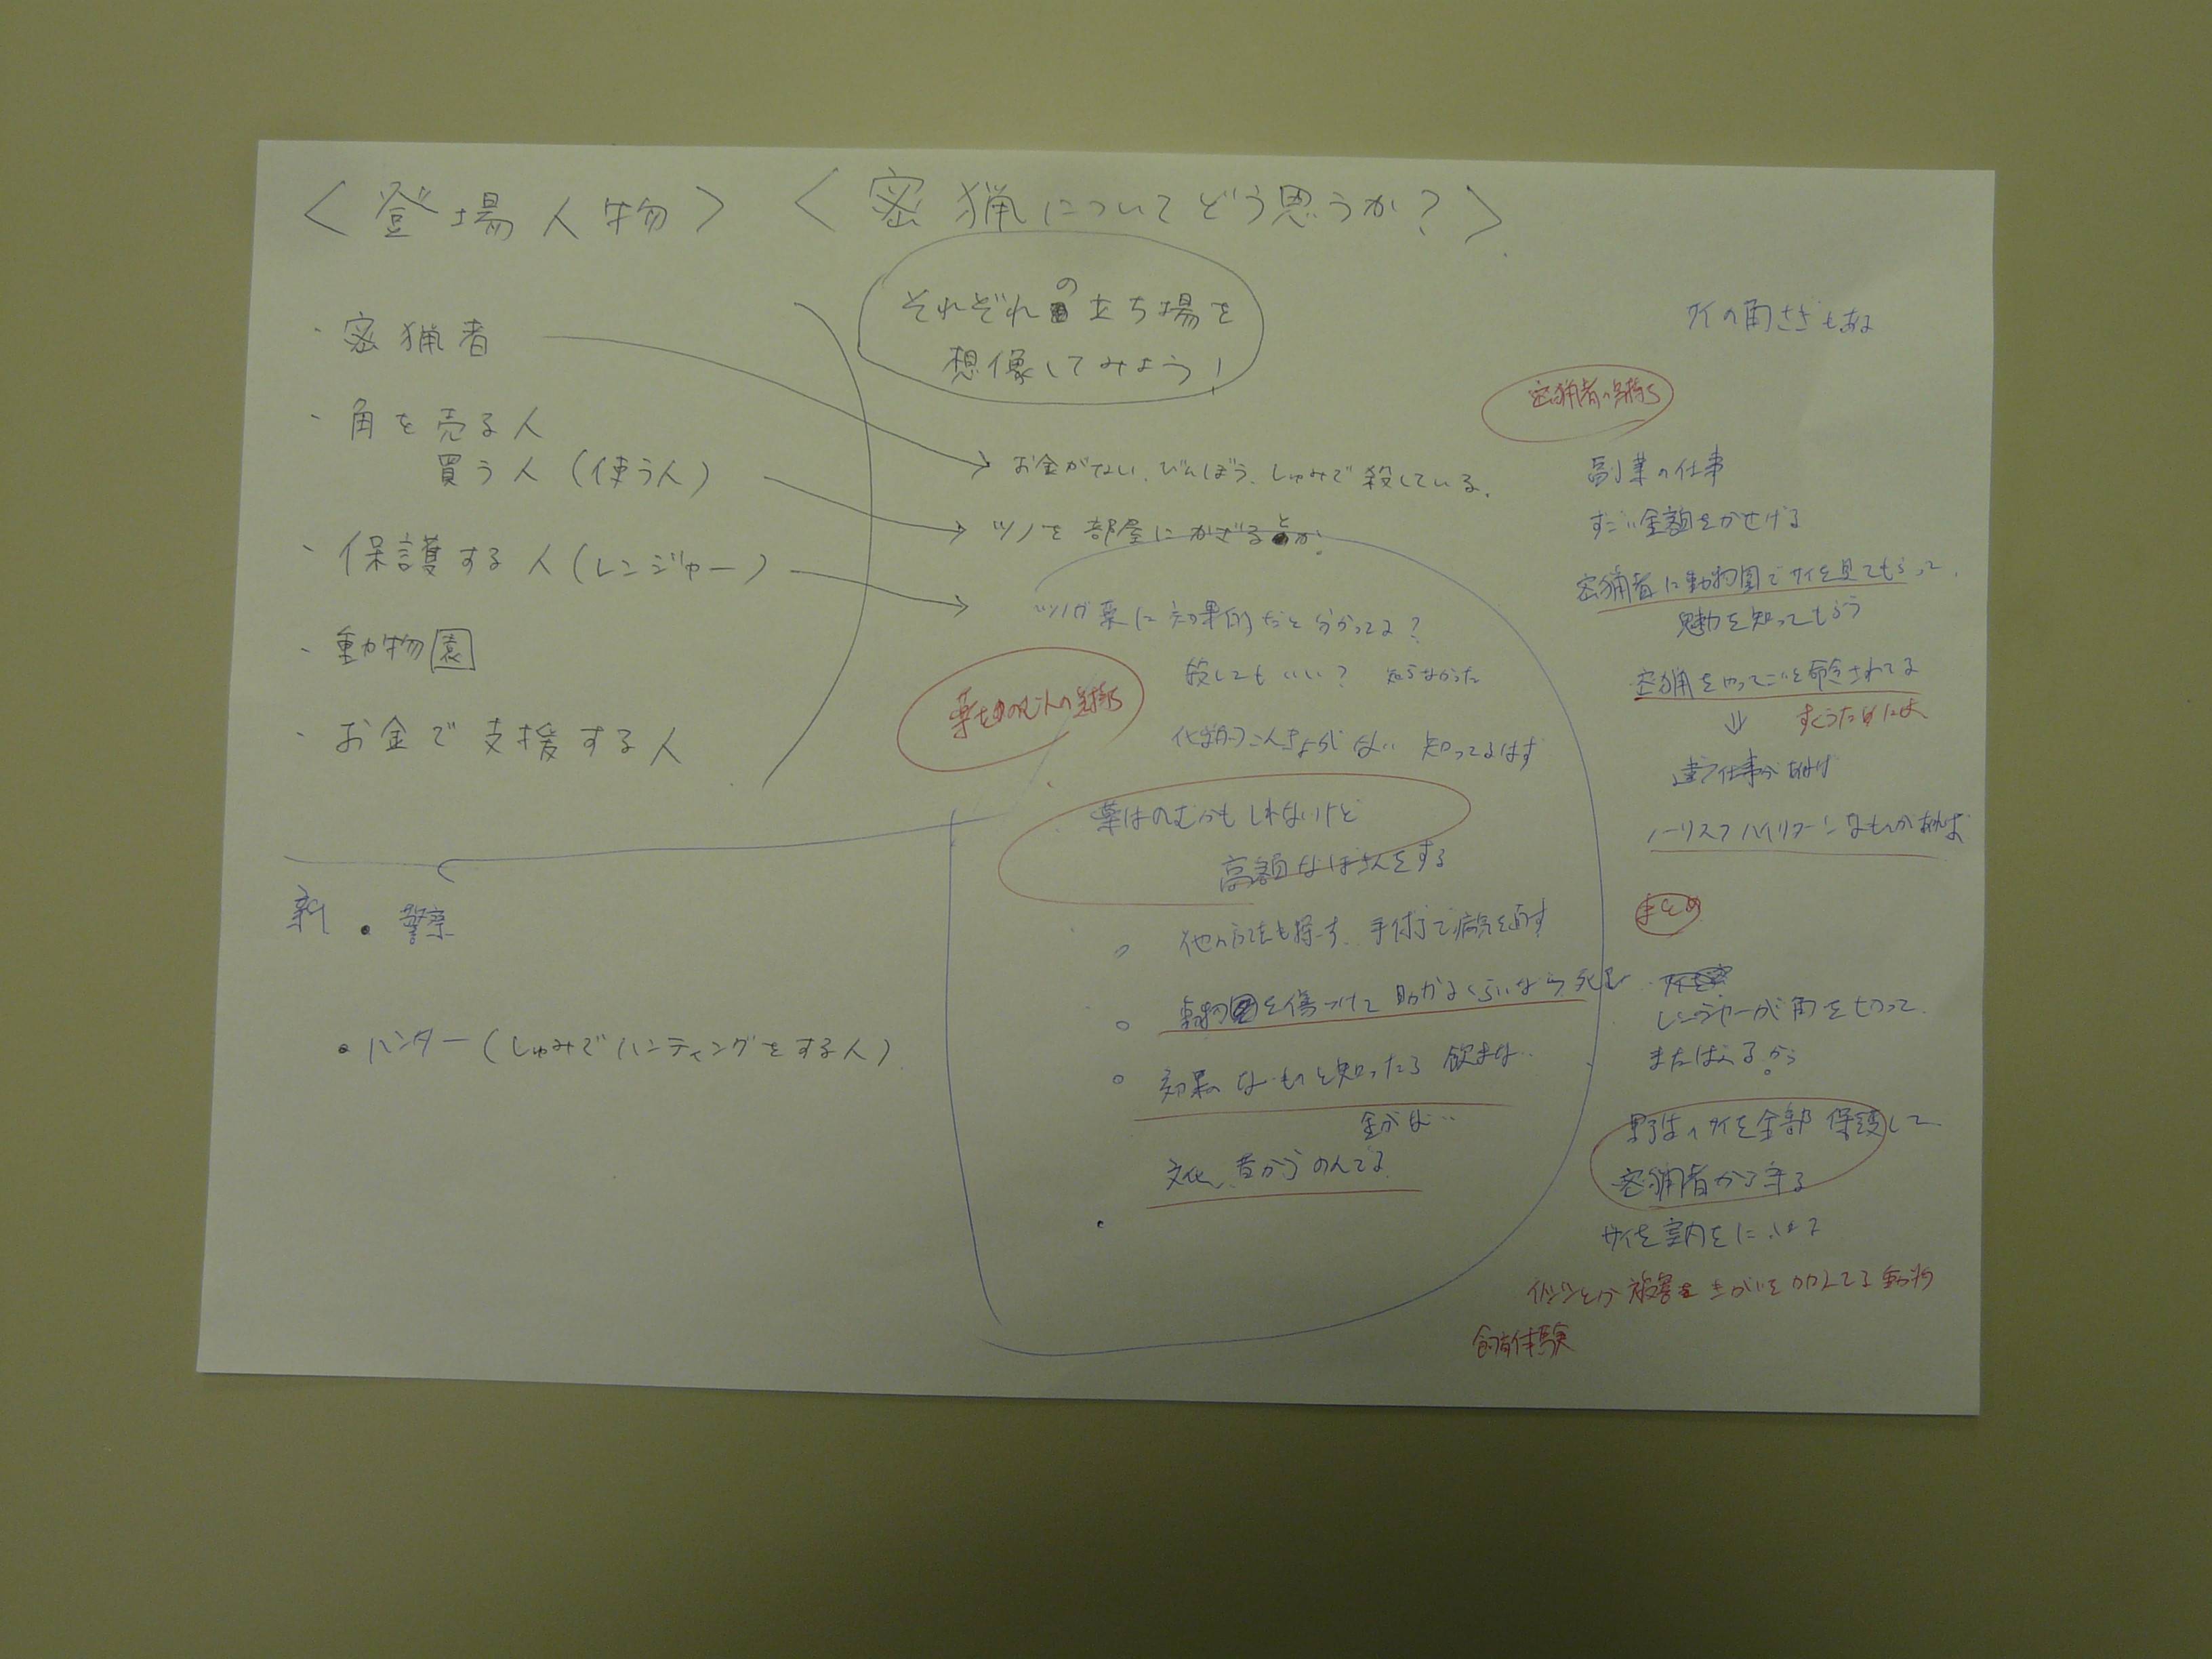 <登場人物>
<密猟についてどう思うか?>
それぞれの立ち場を
想像してみよう!
・密猟者
・角を売る人
買う人(使う人)
・保護する人(レンジャー)
・動物園
・お金で支援する人
新・警察
・ハンター(しゅみでハンティングをする人)
お金がない、びんぼう、しゅみで殺している。
ツノを部屋にかざるとか。
ツノが薬に効果的だと分かってる?
殺してもいい? 知らなかった
知ってるはず
薬をのむ人の気持ち
薬はのむかもしれないけど
高額なぼきんをする
他の方法も探す、手術で病気を直す
を傷つけて助かるくらいなら死
効果ないものと知ったら飲まない
金がない
文化、昔からのんでる
サイの角さぎもある
密猟者の気持ち
副業の仕事
すごい金額をかせげる
密猟者に動物園でサイを見てもらって、
魅力を知ってもらう
密猟をやってこいと命令されてる
⇓ すくうためには
違う仕事があれば
ノーリスクハイリターンなものがあれば
まとめ
レンジャーが角を切って
またはえるから
野生のサイを全部保護して
密猟者から守る
サイを室内
飼育体験